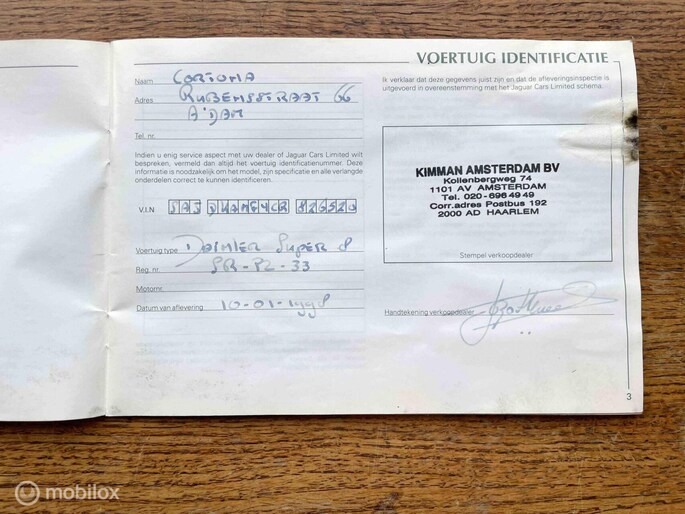 VOERTUIG IDENTIFICATIE
Naam CORTONA
Adres RUBENSSTRAAT 66
A'DAM
Tel. nr.
Indien u enig service aspect met uw dealer of Jaguar Cars Limited wilt
bespreken, vermeld dan altijd het voertuig identificatienummer. Deze
informatie is noodzakelijk om het model, zijn specificatie en alle verlangde
onderdelen correct te kunnen identificeren.
V.I.N SAJ
Voertuig type DAIMLER SUPER 8
Reg. nr. SR-PZ-33
Motornr.
Datum van aflevering 10-01-1998
Ik verklaar dat deze gegevens juist zijn en dat de afleveringsinspectie is
uitgevoerd in overeenstemming met het Jaguar Cars Limited schema.
KIMMAN AMSTERDAM BV
Kollenbergweg 74
1101 AV AMSTERDAM
Tel. 020-696 49 49
Corr.adres Postbus 192
2000 AD HAARLEM
Stempel verkoopdealer
Handtekening verkoopdealer
3
mobilox